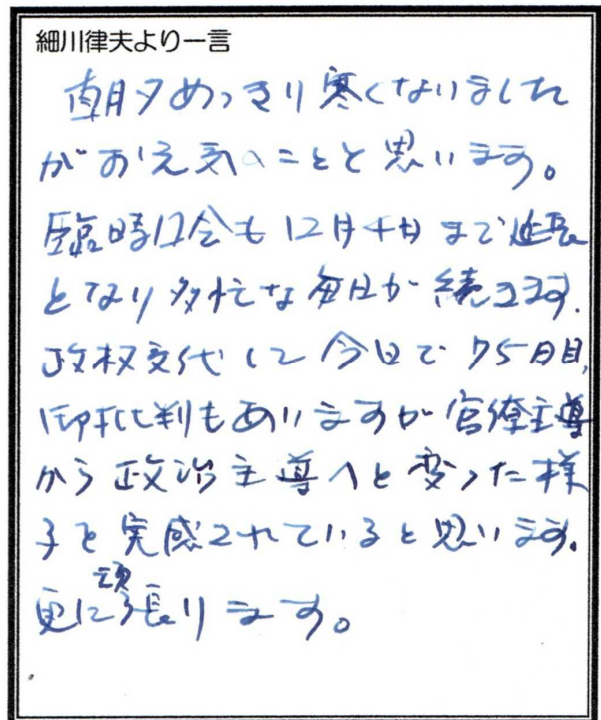 細川律夫より一言
朝夕めっきり寒くなりました
がお元気のことと思います。
臨時国会も12月4日まで延長
となり多忙な毎日が続きます。
政权交代して今日で75日目、
御批判もありますが官僚主導
から政治主導へと変った様
子を実感されていると思います。
更に頑張ります。